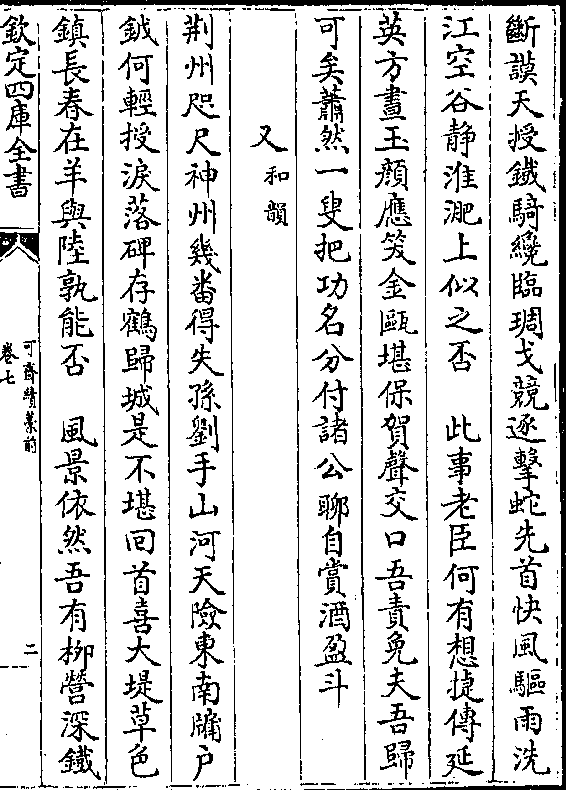 斷謨天授鐵騎纔臨琱戈競逐擊蛇先首快風驅雨洗
江空谷静淮淝上似之否　此事老臣何有想捷傳延
英方晝玉顔應笑金甌堪保賀聲交口吾責免夫吾歸
可矣蕭然一叟把功名分付諸公聊自賞酒盈斗
又和韻
荆州咫尺神州幾畨得失孫劉手山河天險東南牖户
鉞何輕授淚落碑存鶴歸城是不堪回首喜大堤草色
鎮長春在羊與陸孰能否　風景依然吾有柳營深鐵
欽定四庫全書
可齋續藁前
卷七
二